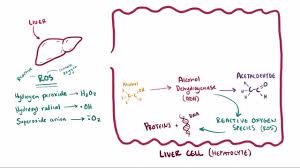 LIVER
Reactive oxygen species
ROS
Hydrogen peroxide → H₂O₂
Hydroxyl radical → •OH
Superoxide anion → •O₂⁻
Alcohol
Alcohol
Dehydrogenase
(ADH)
ACETALDEHYDE
PROTEINS + DNA
REACTIVE OXYGEN
SPECIES (ROS)
LIVER CELL (HEPATOCYTE)